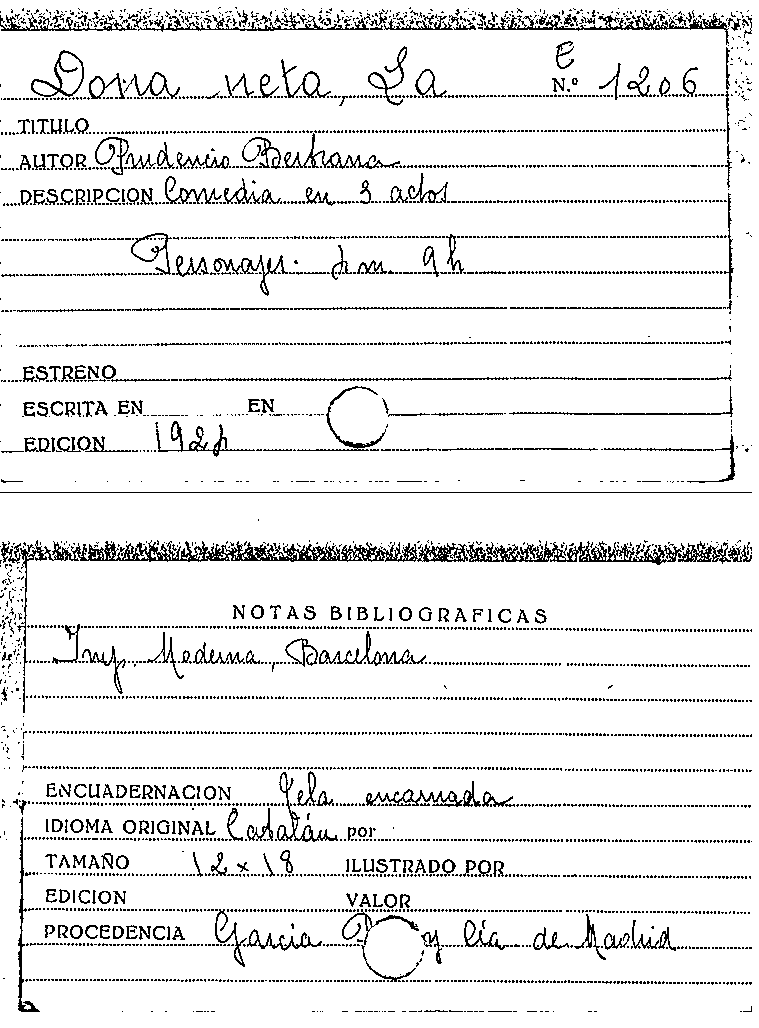 E
Dona neta, La N.º 1206
TITULO
AUTOR Prudencio Bertrana
DESCRIPCION Comedia en 3 actos
Personajes. m. 9 h
ESTRENO
ESCRITA EN EN
EDICION
NOTAS BIBLIOGRAFICAS
Imp. Moderna, Barcelona
ENCUADERNACION Tela encarnada
IDIOMA ORIGINAL Catalán por
TAMAÑO 12 x 18 ILUSTRADO POR
EDICION VALOR
PROCEDENCIA Garcia y Cía de Madrid